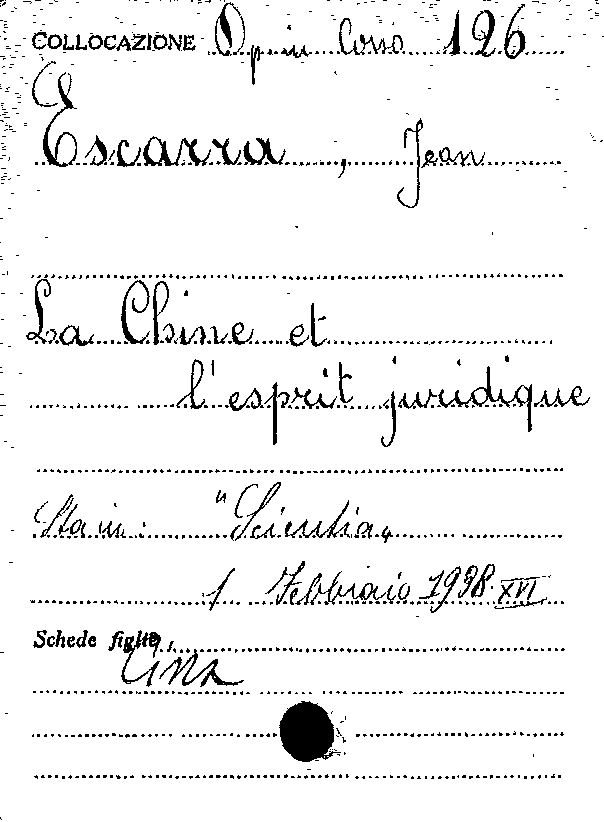 COLLOCAZIONE Op. in Corso 126
Escarra, Jean
La Chine et
l'esprit juridique
Sta in: "Scientia„
1 Febbraio 1938 XVI
Schede figlie,
Cina